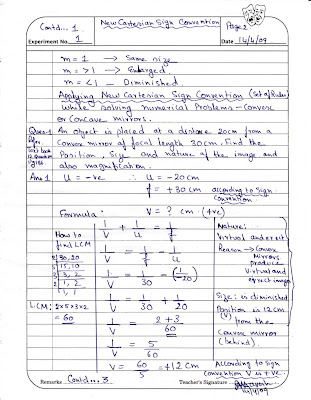 Contd... 1
New Cartesian Sign Convention
Page 2
Experiment No. 1
Date 14/4/09
m = 1 → Same size
m = >1 → Enlarged
m = <1 → Diminished
Applying New Cartesian Sign Convention (Set of Rules)
while solving numerical Problems - Convex
or Concave mirrors.
Ques-1 An object is placed at a distance 20cm from a
Convex mirror of focal length 30cm. Find the
Position, Size and nature of the image and
also magnification.
Ans 1 u = -ve ∴ u = -20cm
f = +30cm according to Sign
Convention
Formula: v = ? cm (+ve)
How to
find LCM
2 30, 20
5 15, 10
3 3, 2
2 1, 2
1, 1
LCM: 2x5x3x2
= 60
1/v + 1/u = 1/f
1/v = 1/f - 1/u
1/v = 1/30 - (1/-20)
1/v = 1/30 + 1/20
1/v = 2+3/60
1/v = 5/60
v = 60/5 = +12cm
Nature:
Virtual and erect
Reason → Convex
mirrors
produce
Virtual and
erect images
Size: is diminished
Position is 12cm
(v) from the
Convex mirror
(behind).
According to Sign
Convention V is +ve.
Remarks Contd... 3
Teacher's Signature
14/4/09